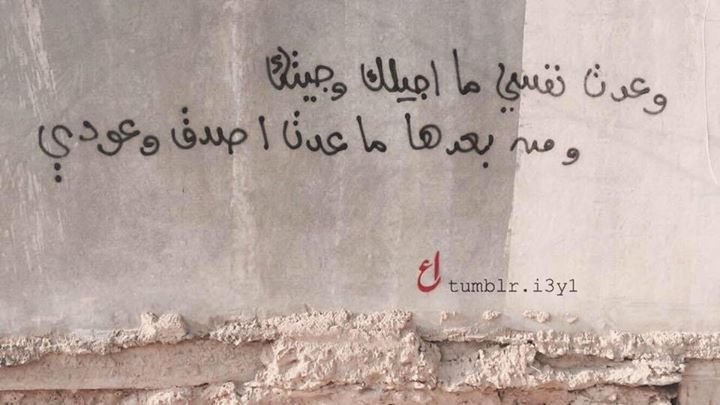 وعدت نفسي ما اجيلك وجيتك
ومن بعدها ما عدت اصدق وعودي
اع
tumblr.i3y1